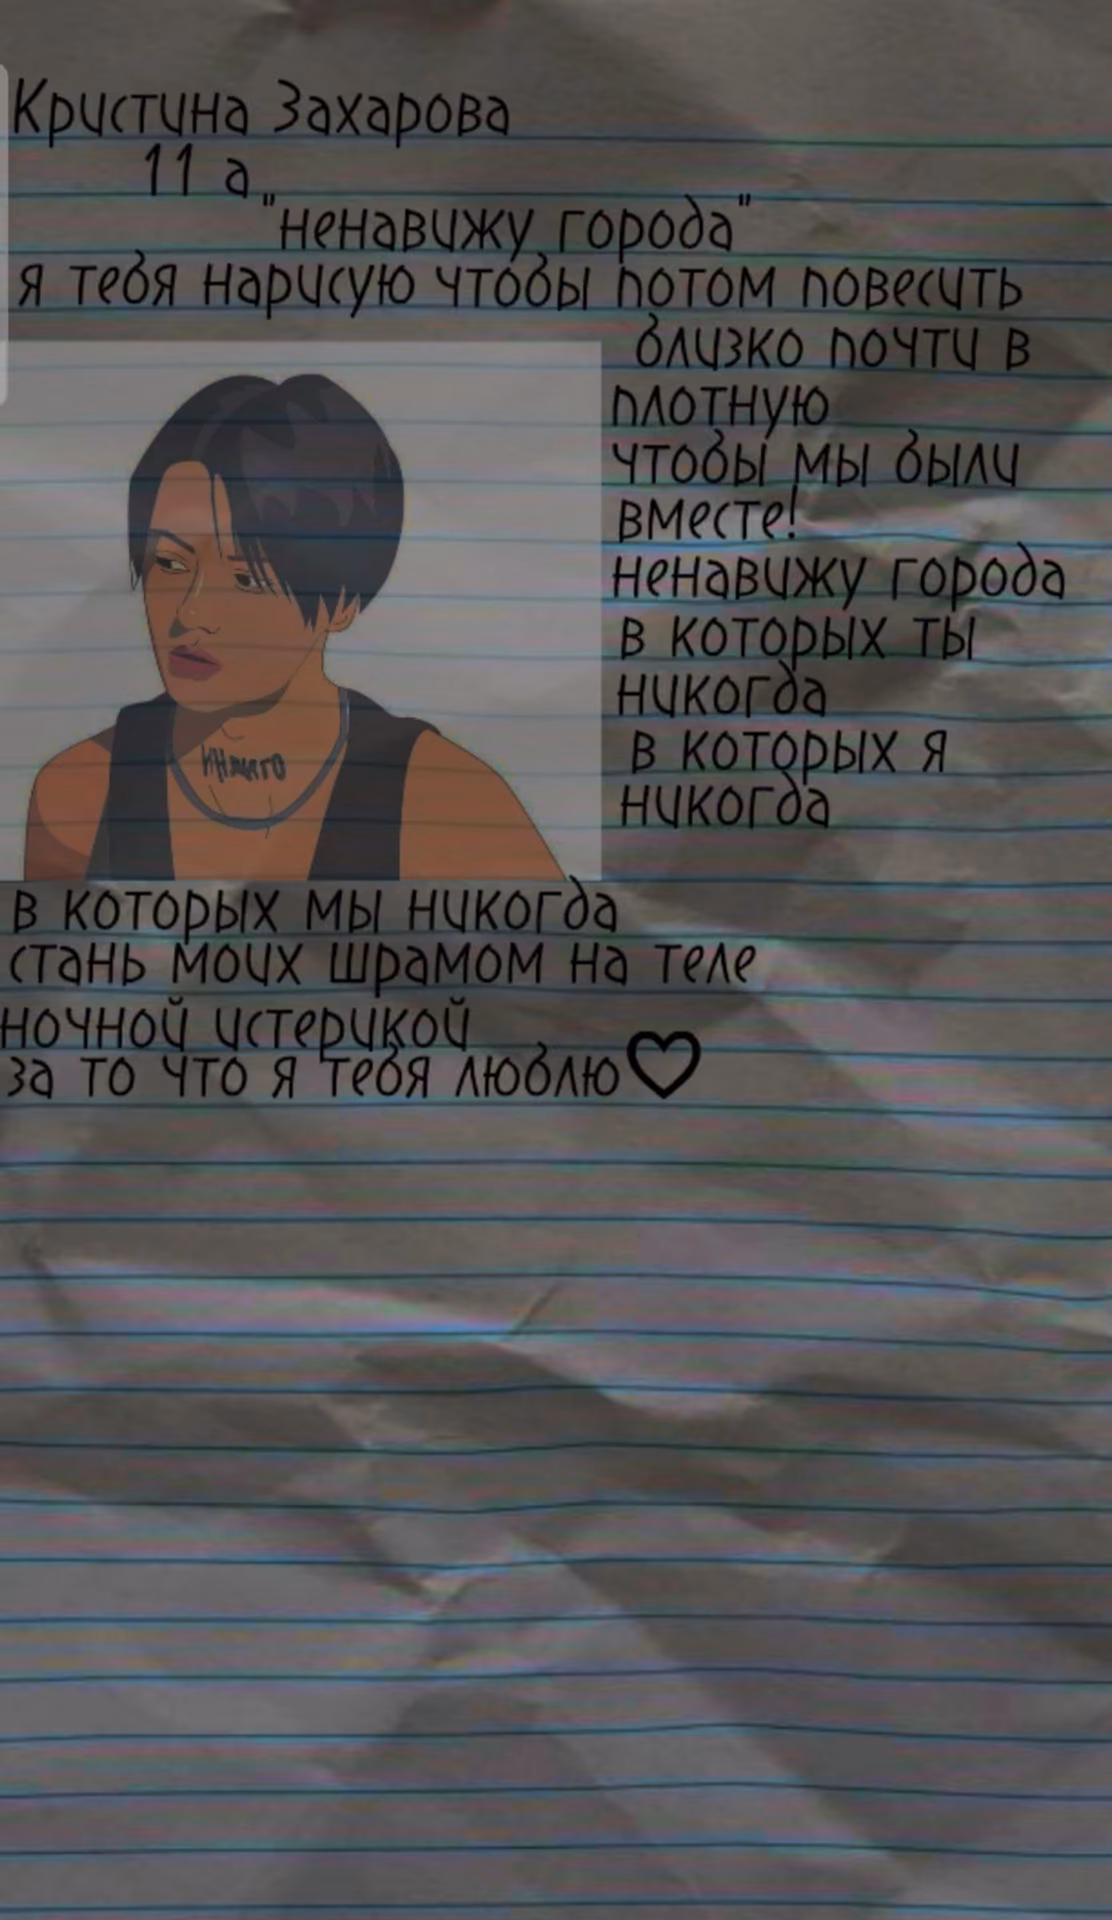 Кристина Захарова
11 а
"ненавижу города"
я тебя нарисую чтобы потом повесить
близко почти в
плотную
чтобы мы были
вместе!
ненавижу города
в которых ты
никогда
в которых я
никогда
индиго
в которых мы никогда
стань моих шрамом на теле
ночной истерикой
за то что я тебя люблю